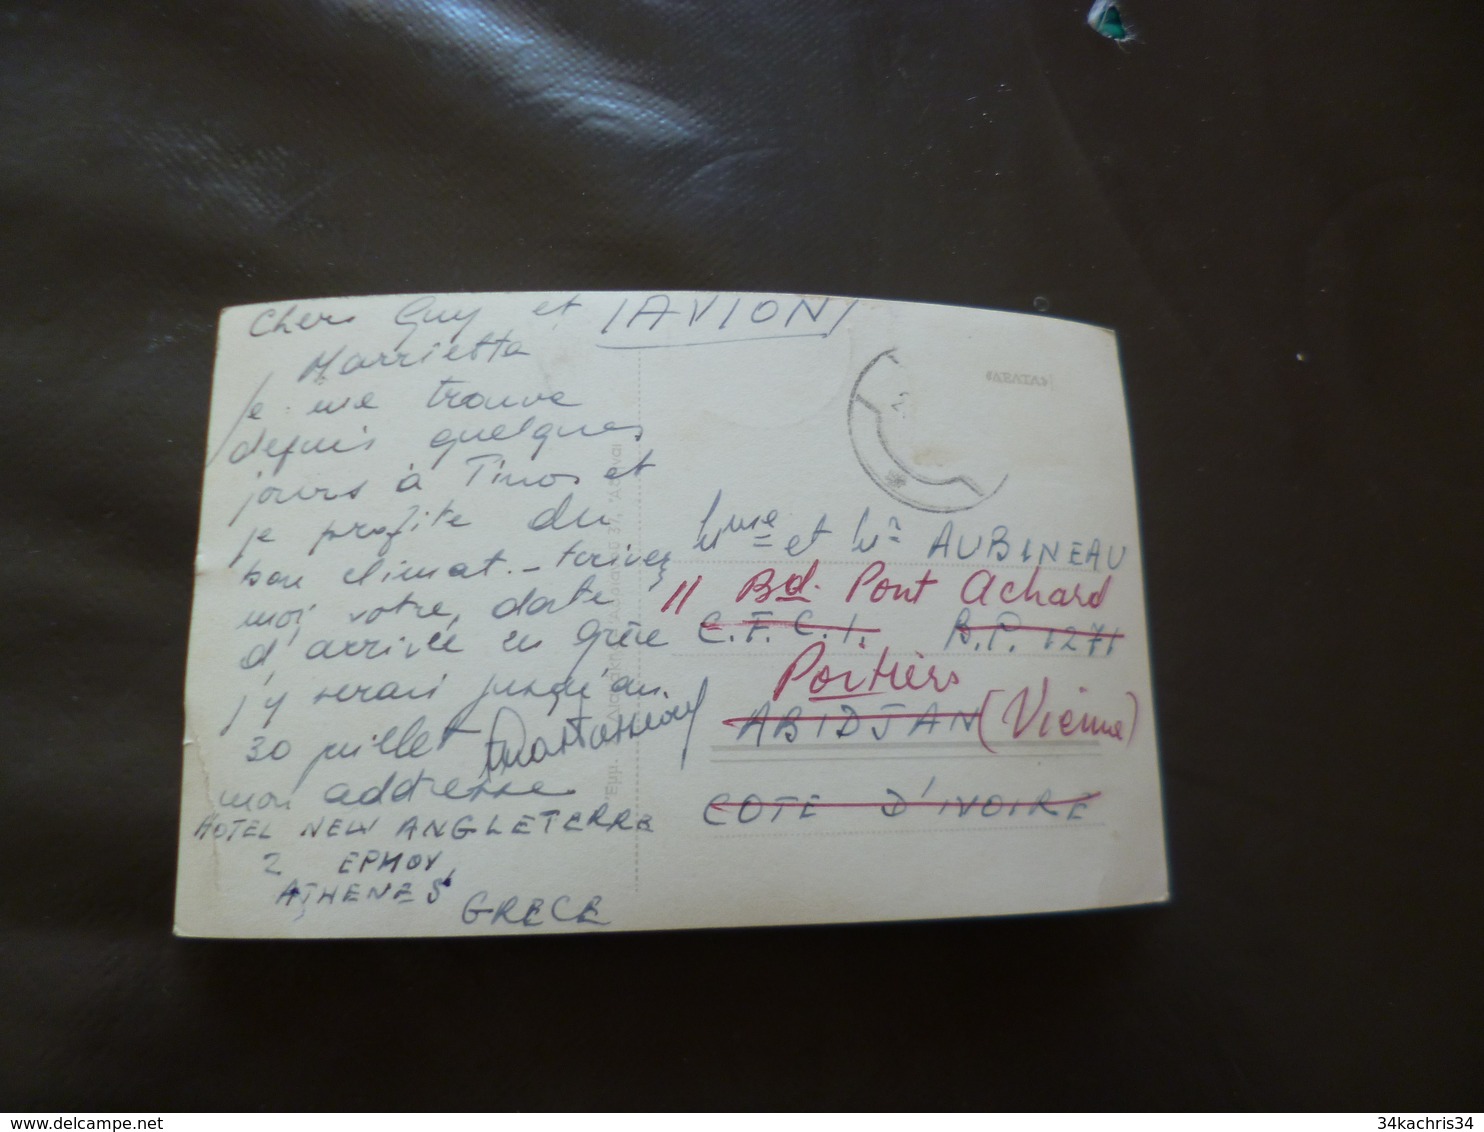 Chers Guy et
Marrietta
je me trouve
depuis quelques
jours à Tinos et
je profite du
bon climat. - Ecrivez
moi votre date
d'arrivée en Grèce
j'y serai jusqu'au
30 juillet
mon addresse
HOTEL NEW ANGLETERRE
2 ΕΡΜΟΥ,
ATHENES
GRECE
AVION
«ΑΕΛΤΑΣ»
Mme et Mr AUBINEAU
11 Bd. Pont Achard
C.F.C.I. B.P. 1271
Poitiers
ABIDJAN (Vienne)
COTE D'IVOIRE
www.delcampe.net
34kachris34